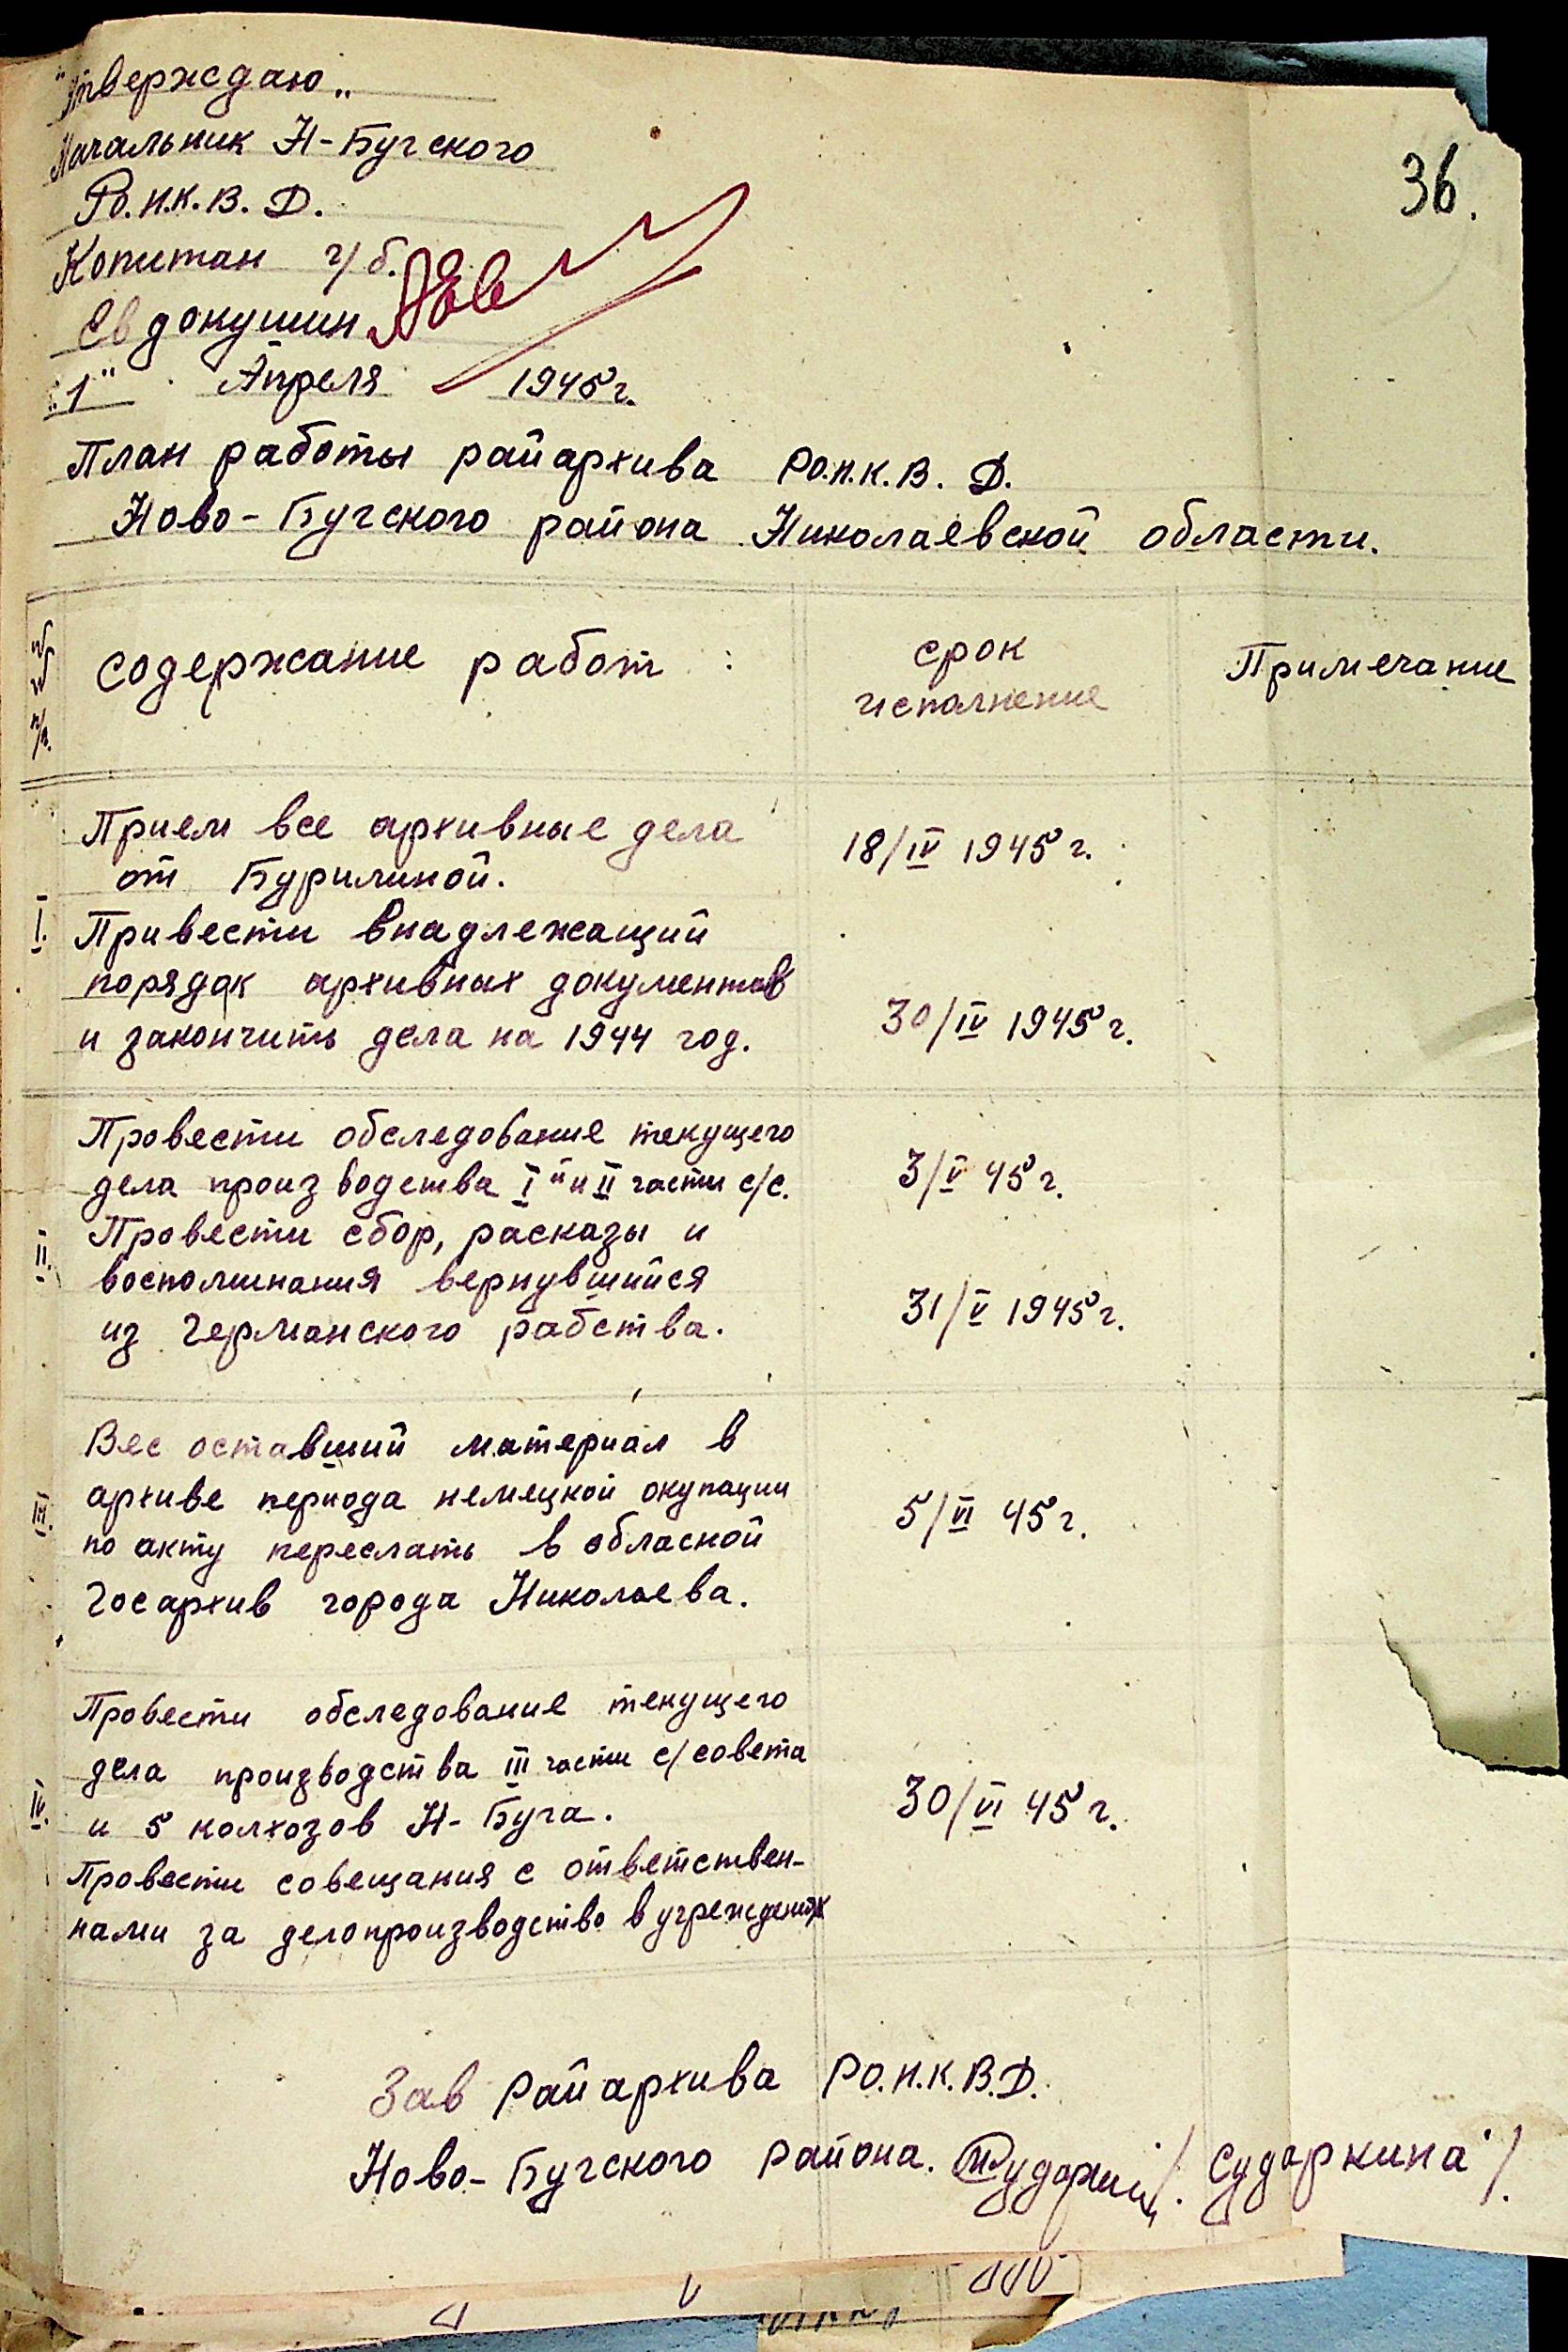 "Утверждаю"
Начальник Н-Бугского
Ро.Н.К.В.Д.
Копитан г/б.
Евдокушин
"1" Апреля 1945г.
36.
План работы райархива Ро.Н.К.В.Д.
Ново-Бугского района Николаевской области.
№№ п/п. содержание работ срок исполнение Примечание
Прием все архивные дела
от Бурилиной. 18/IV 1945г.
I. Привести внадлежащий
порядок архивных документов
и закончить дела на 1944 год. 30/IV 1945г.
Провести обследование текущего
дела производства I й и II части с/с. 3/V 45г.
Провести сбор, расказы и
II. воспоминания вернувшийся
из Германского рабства. 31/V 1945г.
Вес оставший материал в
III. архиве периода немецкой окупации 5/VI 45г.
по акту переслать в обласной
Госархив города Николаева.
Провести обследование текущего
дела производства III части с/совета
IV. и 5 колхозов Н-Буга. 30/VI 45г.
Провести совещания с ответствен-
нами за делопроизводство в учреждениях
Зав Райархива Ро.Н.К.В.Д.
Ново-Бугского Района. /Сударкина/.